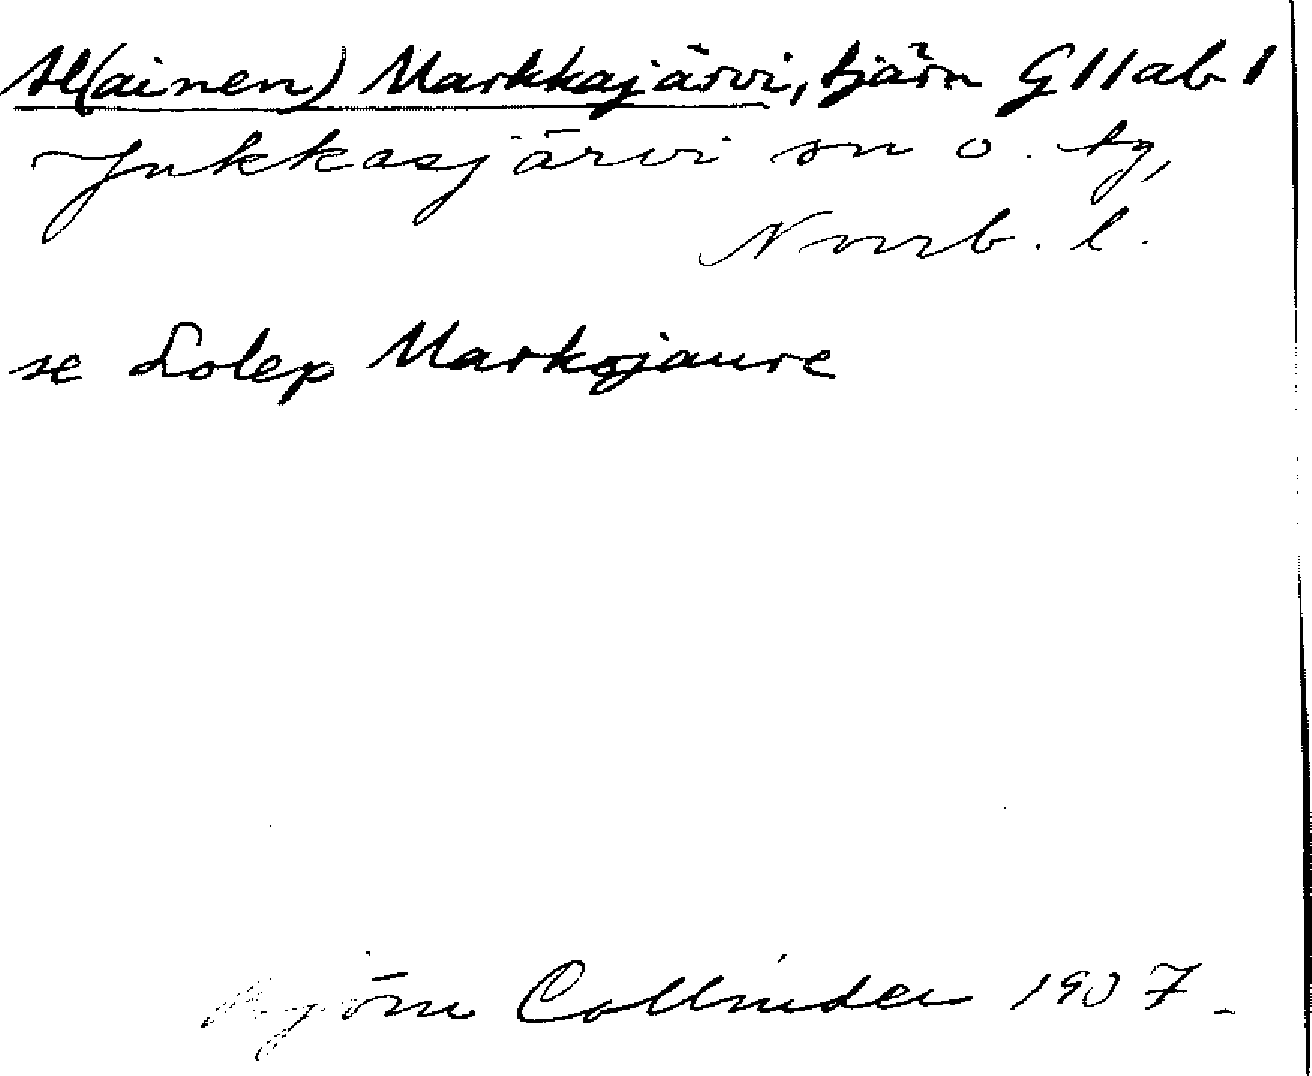 Al(ainen) Markkajärvi, tjärn G 11 a b 1
Jukkasjärvi sn o. tg,
Norrb. l.
se Lolep Markojaure
Björn Collinder 1907